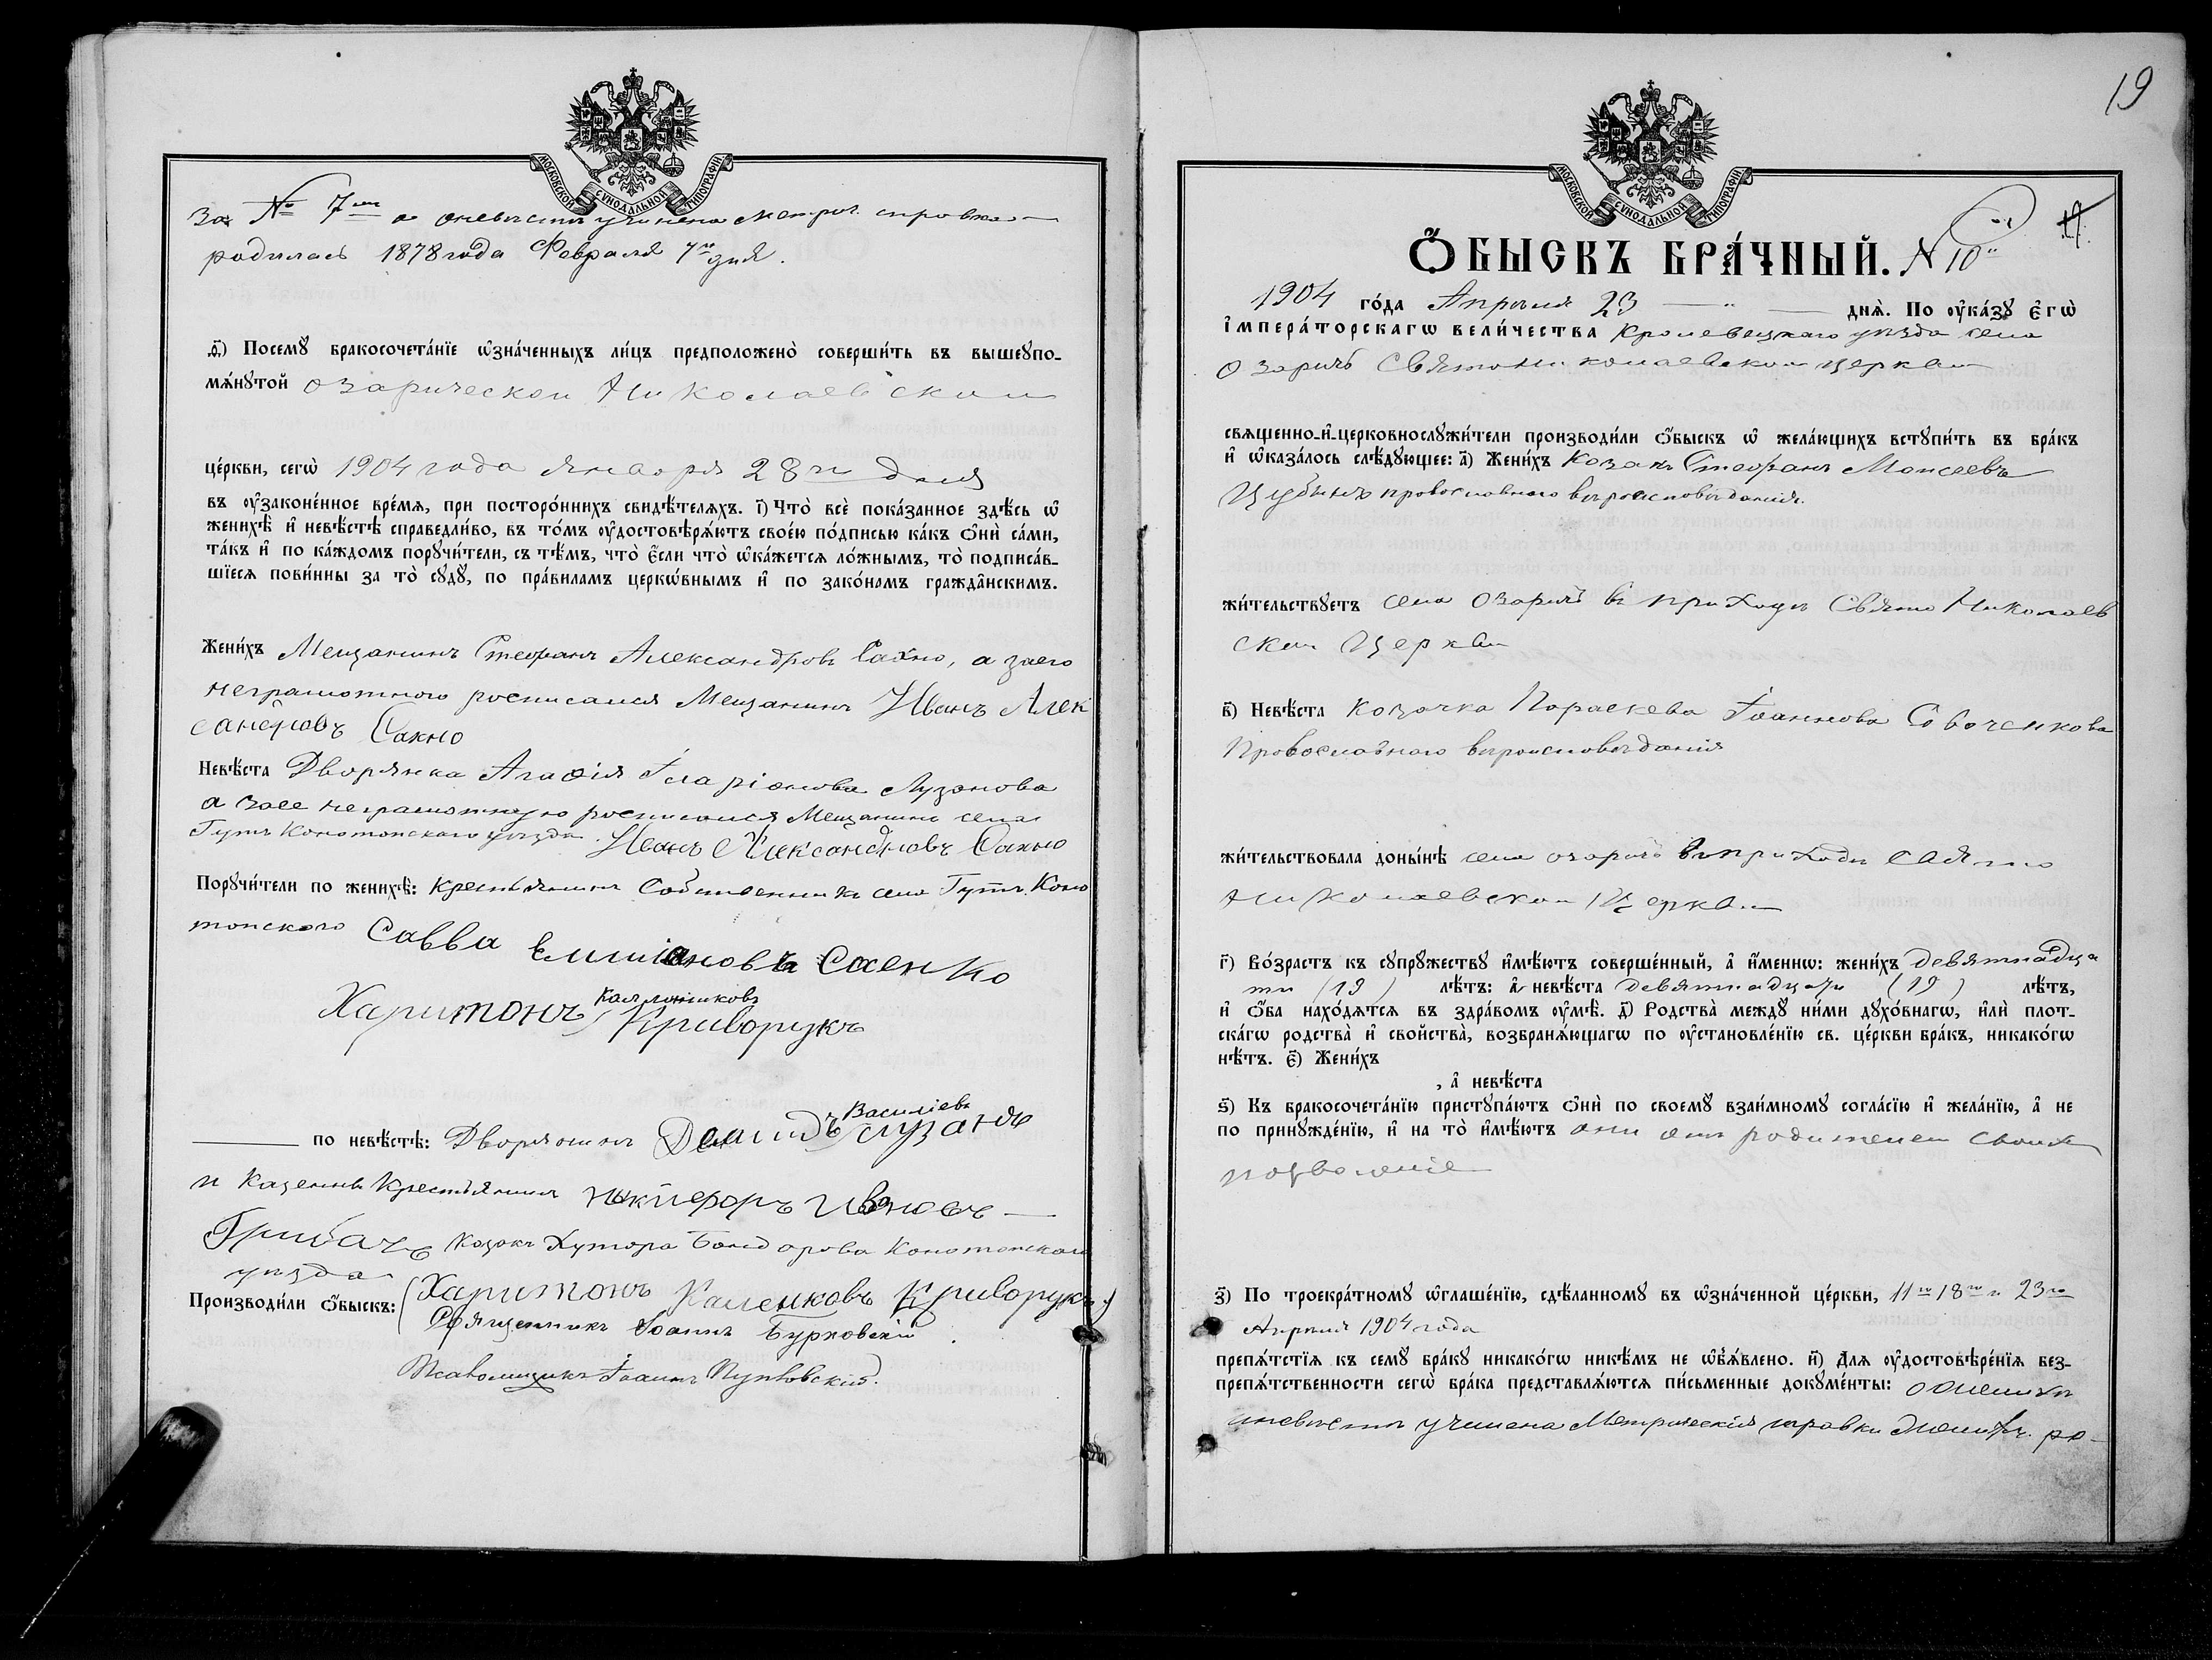 МОСКОВСКОЙ СѴНОДАЛЬНОЙ ТИПОГРАФІИ
За № 7м а оневѣстѣ учинена метрич. справка
родилась 1878 года Февраля 7го дня.
д҃) Посемꙋ бракосочета́нїе ѡ҆зна́ченныхъ ли́цъ предположено̀ соверши́ть въ вышеꙋпо-
мѧ́нꙋтой Озарической Николаевской
це́ркви, сегѡ̀ 1904 года января 28го дня
въ оу҆законе́нное вре́мя, при посторо́ннихъ свидѣ́телѧхъ. і҃) Что̀ всѐ пока́занное здѣ́сь ѡ҆
женихѣ̀ и҆ невѣ́стѣ справедли́во, въ то́мъ оу҆достовѣрѧ́ютъ свое́ю по́дписью ка́къ ѻ҆нѝ са́ми,
та́къ и҆ по ка́ждомъ порꙋчи́тели, съ тѣ́мъ, что̀ є҆́сли что̀ ѡ҆ка́жется ло́жнымъ, то̀ подписа́в-
шїеся пови́нны за то̀ сꙋдꙋ̀, по пра́виламъ церкѡ́внымъ и҆ по зако́намъ гражда̑нскимъ.
Жени́хъ Мещанинъ Стефанъ Александровъ Сахно, а заего
неграмотного росписался Мещанинъ Иванъ Алек
сандровъ Сахно
Невѣ́ста Дворянка Агафія Іларіонова Лузанова
а заее неграмотную росписался Мещанинъ села
Гутъ Конотопскаго уѣзда. Иванъ Александровъ Сахно
Порꙋчи́тели по женихѣ̀: Крестьянинъ Собственникъ села Гутъ Коно
топского Савва Емилiановъ Саенко
Харитонъ Каллениковъ Криворукъ
по невѣ́стѣ: Дворянинъ Демидъ Василіевъ Лузанъ
и Казенны Крестьянинъ Никифоръ Ивановъ
Грибачъ Козакъ Хутора Бондарова Конотопскаго
уѣзда
Производи́ли ѻ҆́быскъ: Харитонъ Каленковъ Криворукъ
Священникъ Іоаннъ Бурковскій.
Псаломщикъ Іоаннъ Пуковскій.
19
МОСКОВСКОЙ СѴНОДАЛЬНОЙ ТИПОГРАФІИ
Ѻ҆́БЫСКЪ БРА́ЧНЫЙ. № 10й
1904 го́да Апрѣля 23 днѧ̀. По оу҆ка́зꙋ є҆гѡ̀
і҆мпера́торскагѡ вели́чества Кролевецкаго уѣзда села
Озаричъ Святониколаевской церкви
священно-и҆-церковнослꙋжи́тели производи́ли ѻ҆́быскъ ѡ҆ жела́ющихъ встꙋпи́ть въ бра́къ
и҆ ѡ҆каза́лось слѣ́дꙋющее: а҃) Жени́хъ Козакъ Стефанъ Моисеевъ
Цубинъ православнаго вѣроисповѣданія.
жи́тельствꙋетъ села Озаричъ въ приходѣ Свято Николаев
ской Церкви
в҃) Невѣ́ста Козачка Параскева Іоаннова Совоченкова
Православнаго вѣроисповѣданія
жи́тельствовала доны́нѣ села озаричъ въ приходѣ Свято
Николаевской Церкви
г҃) Во́зрастъ къ сꙋпрꙋ́жествꙋ и҆мѣ́ютъ соверше́нный, а҆ и҆́меннѡ: жени́хъ девятнадца
ти (19) лѣ́тъ: а҆ невѣ́ста девятнадцати (19) лѣ́тъ,
и҆ ѻ҆́ба нахо́дятся въ здра́вомъ оу҆мѣ̀. д҃) Родства̀ междꙋ̀ ни́ми дꙋхо́внагѡ, и҆лѝ плот-
ска́гѡ родства̀ и҆ сво́йства̀, возбранѧ́ющагѡ по оу҆становле́нїю св. це́ркви бра́къ, никако́гѡ
нѣ́тъ. є҃) Жени́хъ
, а҆ невѣ́ста
ѕ҃) Къ бракосочета́нїю пристꙋпа́ютъ ѻ҆нѝ по своемꙋ̀ взаи́мномꙋ согла́сїю и҆ жела́нїю, а҆ не
по принꙋжде́нїю, и҆ на то̀ и҆мѣ́ютъ они отъ родителей своихъ
позволеніе
з҃) По троекра́тномꙋ ѡ҆глаше́нїю, сдѣ́ланномꙋ въ ѡ҆зна́ченной це́ркви, 11го 18го и 23го
Апрѣля 1904 года
препѧ́тстїя къ семꙋ̀ бра́кꙋ никако́гѡ никѣ́мъ не ѡ҆б̾ѧ́влено. и҃) Для оу҆достовѣре́нїя без-
препѧ́тственности сегѡ̀ бра́ка представлѧ́ются пи́сьменные докꙋме́нты: о женихѣ
иневѣстѣ учинена Метрическія справки Женихъ. ро-